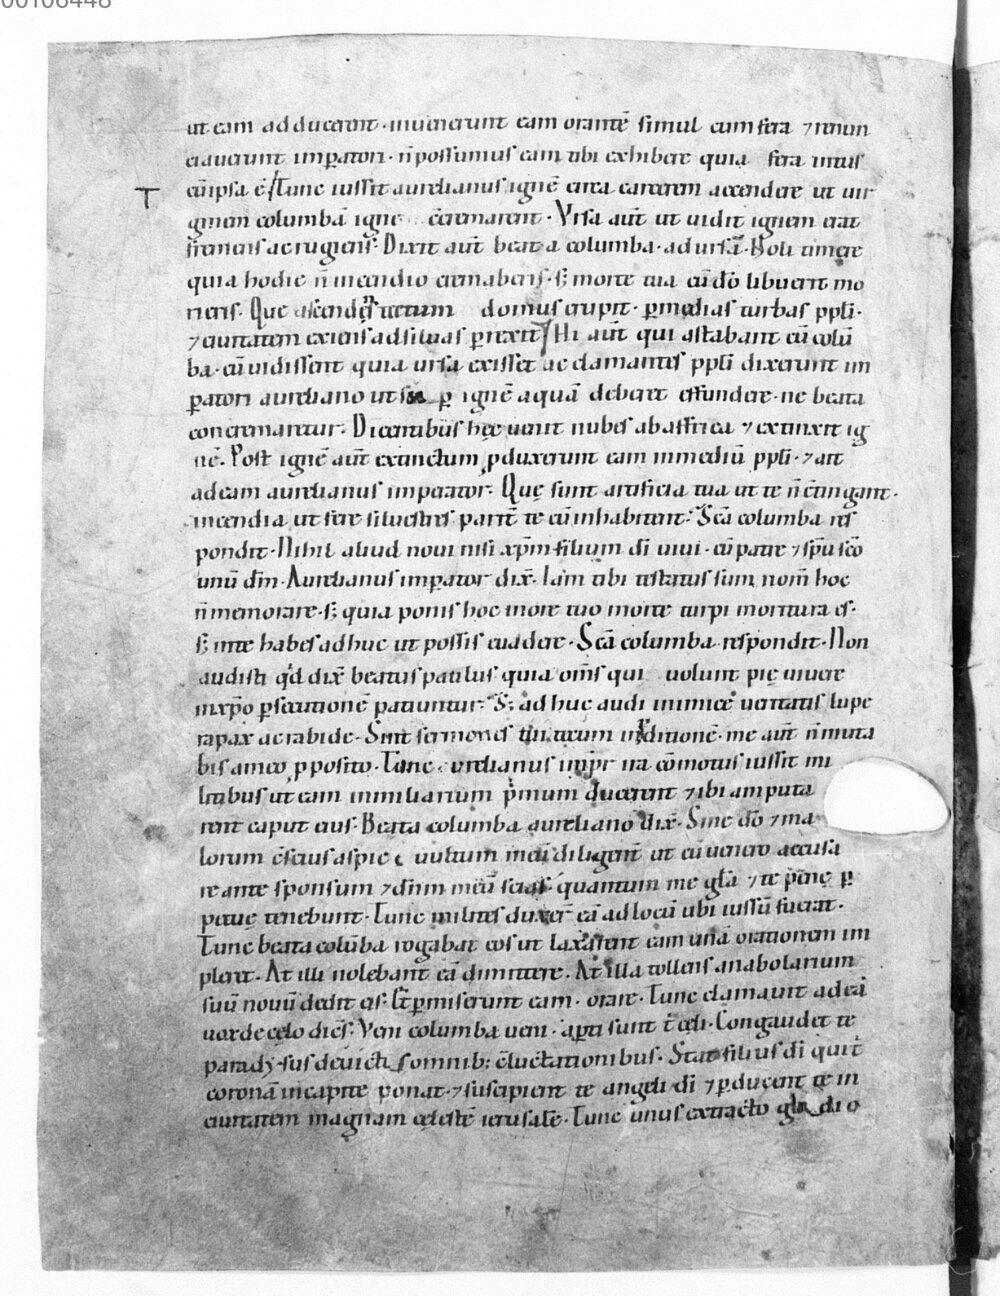 00106448
ut eam adducerent · inuenerunt eam orantē simul cum fera ⁊ renun
ciauerunt imꝑatori · n̄ possumus eam tibi exhibere quia fera intus
cū ipsa ē / Tunc iussit aurelianus ignē circa carcerem accendere ut uir
T
ginem columbā igne cremarent · Vrsa aut̄ ut uidit ignem erat
fremens ac rugiens · Dixit aut̄ beata columba · ad ursā · Noli timere
quia hodie n̄ incendio cremaberis · s; morte tua cū dō libuerit mo
rieris · Que ascendens tectum domus erupit · ꝑ medias turbas ppl̄i ·
⁊ ciuitatem exiens ad siluas ꝑrexit / Hi aut̄ qui astabant cū colū
ba · cū uidissent quia ursa exisset ac clamantes ppl̄i dixerunt im
ꝑatori aureliano ut ꝑ ignē aquā deberet effundere · ne beata
concremaretur · Dicentibus hec uenit nubes ab affrica ⁊ extinxit ig
nē · Post ignē aut̄ extinctum ꝓduxerunt eam in mediū ppl̄i · ⁊ ait
ad eam aurelianus imperator · Quę sunt artificia tua ut te n̄ c̄tingant ·
incendia ut fere siluestres parit̄ te cū inhabitent · Sc̄a columba res
pondit · Nihil aliud noui nisi xp̄m filium dī uiui · cū patre ⁊ sp̄u sc̄o
unū dm̄ · Aurelianus imꝑator dix̄ · Iam tibi testatus sum nom̄ hoc
n̄ memorare · s; quia ponis hoc more tuo morte turpi moritura es ·
s; in te habes adhuc ut possis euadere · Sc̄a columba respondit · Non
audisti qd̄ dix̄ beatus paulus quia om̄s qui uolunt pię uiuere
in xp̄o ꝑsecutionē patiuntur · S; adhuc audi inimice ueritatis lupe
rapax ac rabide · Sint sermones tui tecum in ꝑditionē · me aut̄ n̄ muta
bis a meo ꝓposito · Tunc aurelianus imp̄r ira cōmotus iussit mi
litibus ut eam in miliarium p̄mum ducerent ⁊ ibi amputa
rent caput eius · Beata columba aureliano dix̄ · Sine dō ⁊ ma
lorum c̄scius aspice uultum meū diligent̄ ut cū uenero accusa
re ante sponsum ⁊ dn̄m meū scias · quantum me gl̄a ⁊ te pęnę ꝑ
petuę tenebunt · Tunc milites duxer̄ eā ad locū ubi iussū fuerat ·
Tunc beata colūba rogabat eos ut laxarent eam unā orationem im
plere · At illi nolebant eā dimittere · At illa tollens anabolarium
suū nouū dedit eis · Et ꝑmiserunt eam · orare · Tunc clamauit ad eā
uox de cęlo dicēs · Veni columba ueni · aꝑti sunt t̄ cęli · Congaudet te
paradysus deuictis omnib; c̄luctationibus · Stat filius dī qui t̄
coronā in capite ponat · ⁊ suscipient te angeli dī ⁊ ꝑducent te in
ciuitatem magnam cęlestē ierusalē · Tunc unus extracto gladio